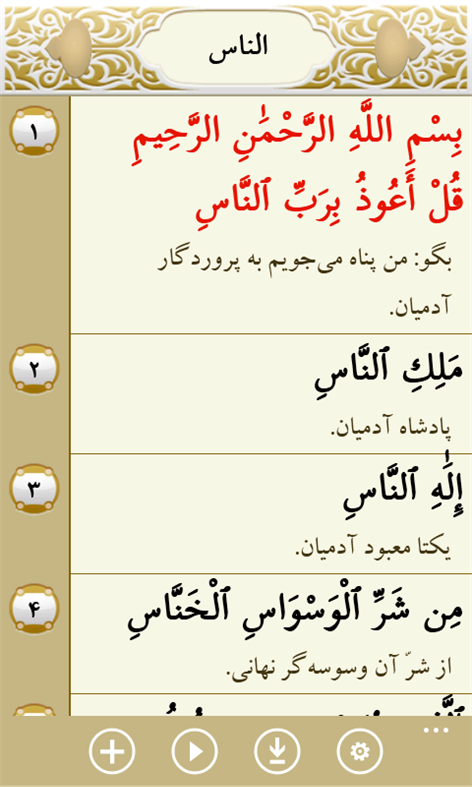 الناس
١
بِسْمِ اللَّهِ الرَّحْمَٰنِ الرَّحِيمِ
قُلْ أَعُوذُ بِرَبِّ ٱلنَّاسِ
بگو: من پناه می‌جویم به پروردگار
آدمیان.
٢
مَلِكِ ٱلنَّاسِ
پادشاه آدمیان.
٣
إِلَٰهِ ٱلنَّاسِ
یکتا معبود آدمیان.
۴
مِن شَرِّ ٱلْوَسْوَاسِ ٱلْخَنَّاسِ
از شرّ آن وسوسه‌گر نهانی.